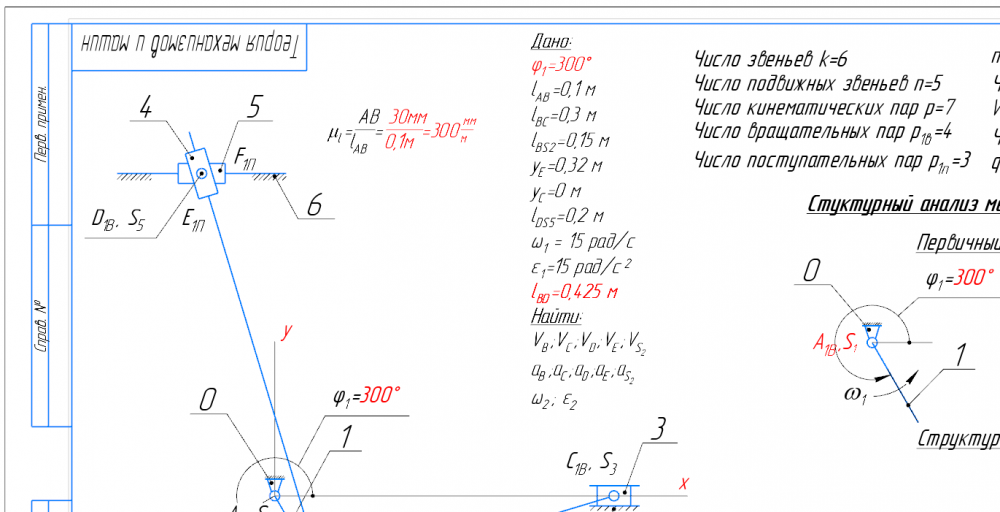 Теория механизмов и машин
Перв. примен.
Справ. №
4
5
F1П
6
D1В, S5
E1П
μl=AB/lAB=30мм/0,1м=300 мм/м
Дано:
φ1=300°
lAB=0,1 м
lBC=0,3 м
lBS2=0,15 м
yE=0,32 м
yC=0 м
lDS5=0,2 м
ω1 = 15 рад/с
ε1=15 рад/с²
lBD=0,425 м
Найти:
VB;VC;VD;VE;VS2
aB,aC;aD,aE;aS2
ω2; ε2
Число звеньев k=6
Число подвижных звеньев n=5
Число кинематических пар p=7
Число вращательных пар p1в=4
Число поступательных пар p1п=3
Стуктурный анализ
Первичный
0
φ1=300°
A1В, S1
1
ω1
y
0
φ1=300°
1
3
C1В, S3
x